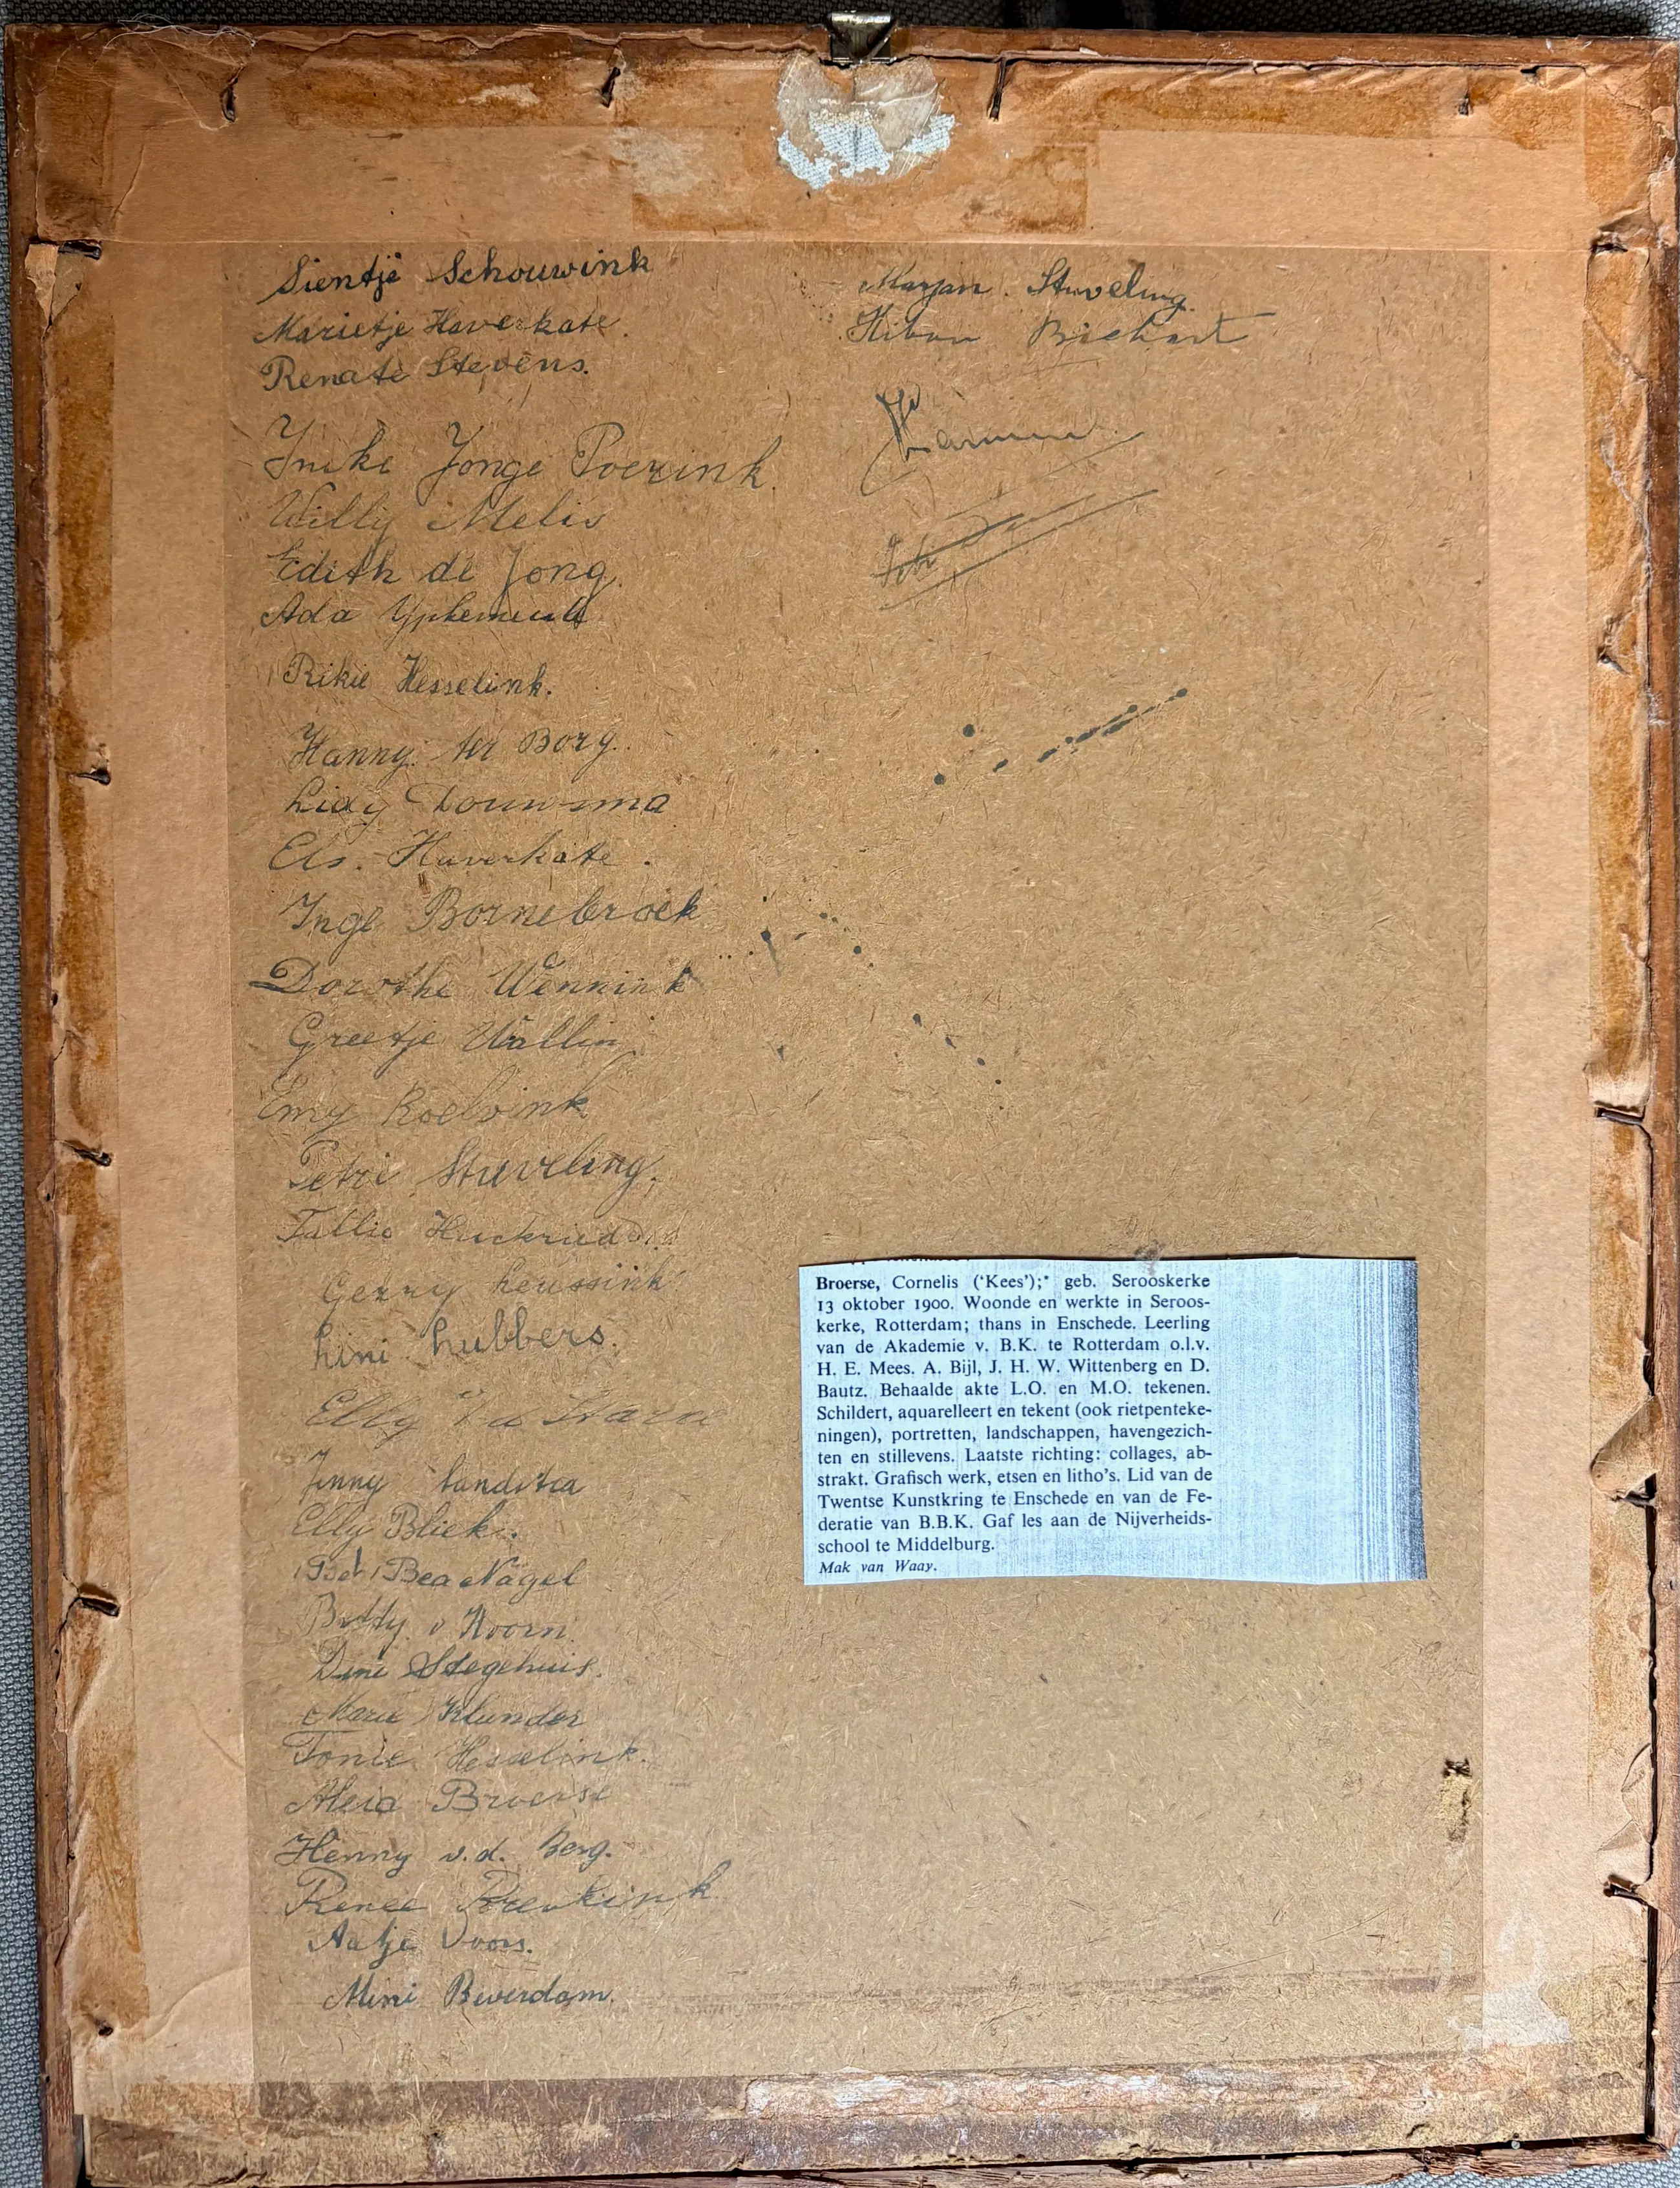 Sientje Schouwink
Marietje Haverkate.
Renate Stevens.
Ineke Jonge Poerink.
Willy Melis
Edith de Jong.
Ada
Rikie Hesselink.
Hanny ter Borg.
Lidy Douwsma
Els. Haverkate.
Inge Bornebroek
Dorothe Wennink
Greetje Wallin
Emy Roelvink
Petri Stuveling.
Gerry Leussink
Lini Lubbers.
Elly
Jenny Landstra
Elly Bliek.
Bea Nagel
Betty v Hoorn.
Dini Stegehuis.
Marie Klunder
Tonie Hesselink.
Broerse
Henny v.d. Berg.
Renee
Aatje Voors.
Mini Beverdam.
Marjan. Stuveling.
Broerse, Cornelis (‘Kees’);* geb. Serooskerke
13 oktober 1900. Woonde en werkte in Seroos-
kerke, Rotterdam; thans in Enschede. Leerling
van de Akademie v. B.K. te Rotterdam o.l.v.
H. E. Mees. A. Bijl, J. H. W. Wittenberg en D.
Bautz. Behaalde akte L.O. en M.O. tekenen.
Schildert, aquarelleert en tekent (ook rietpenteke-
ningen), portretten, landschappen, havengezich-
ten en stillevens. Laatste richting: collages, ab-
strakt. Grafisch werk, etsen en litho’s. Lid van de
Twentse Kunstkring te Enschede en van de Fe-
deratie van B.B.K. Gaf les aan de Nijverheids-
school te Middelburg.
Mak van Waay.